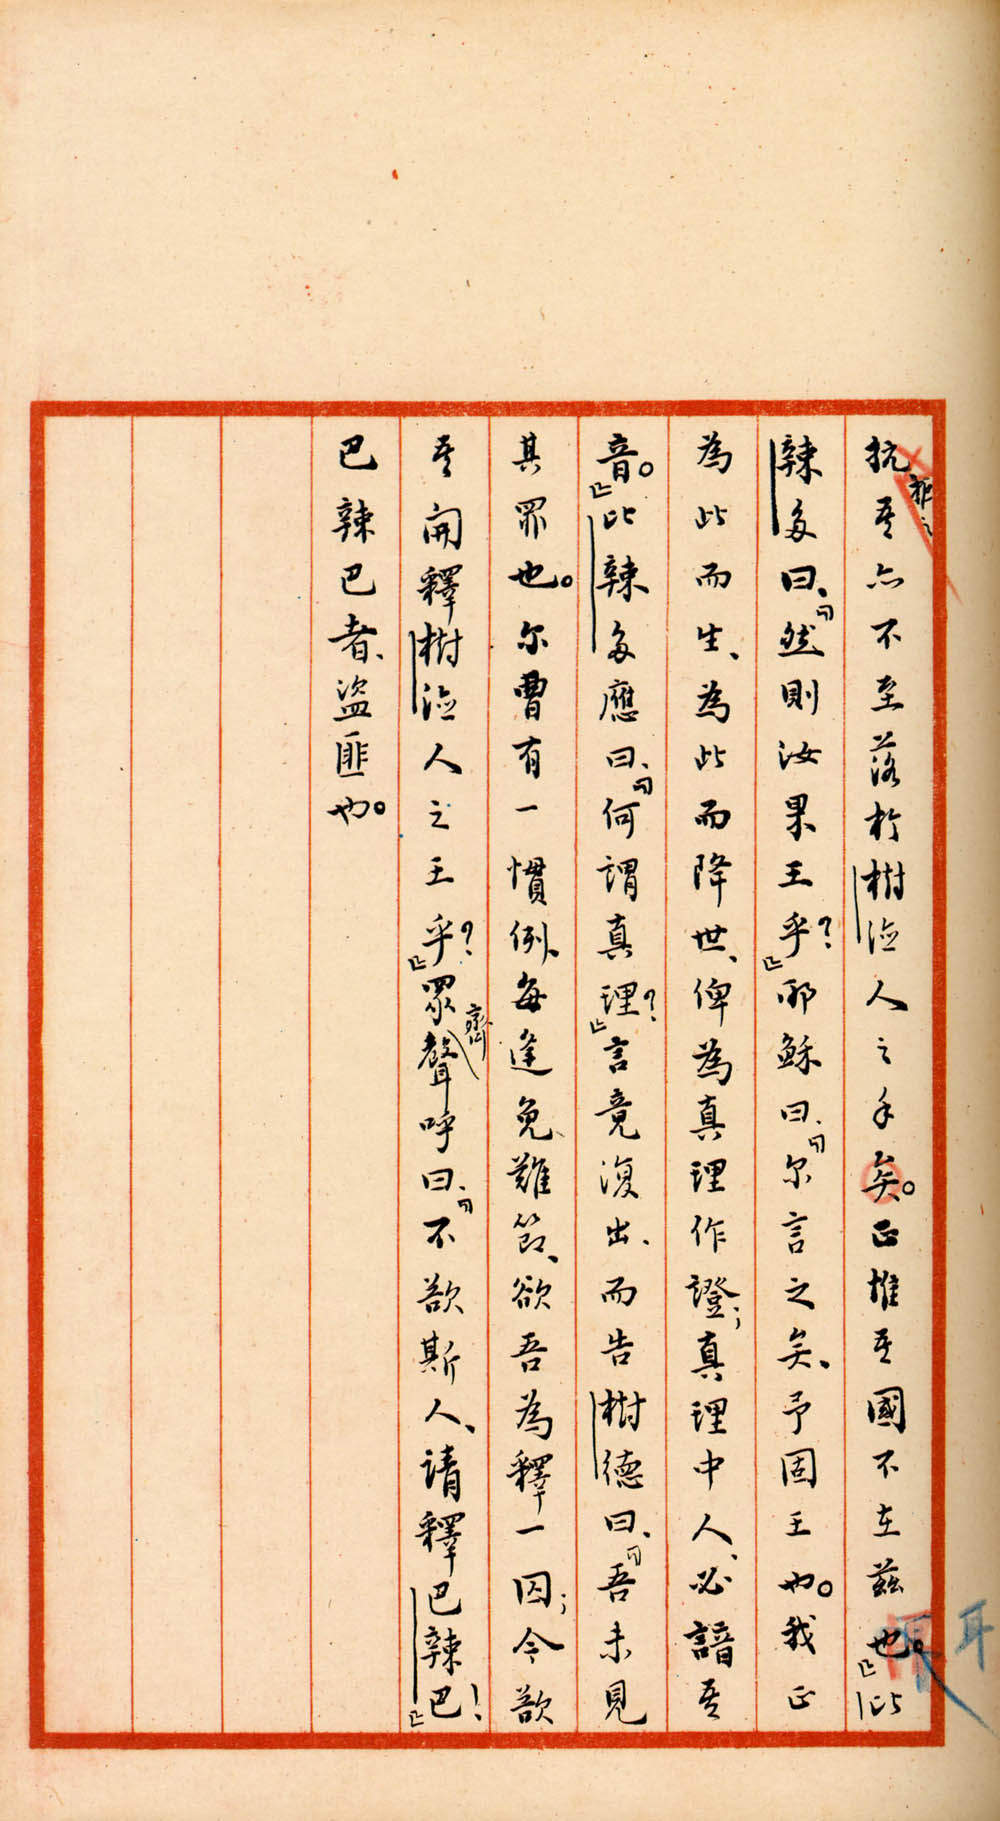 抗吾亦不至落於樹德人之手矣。正惟吾國不在茲也。」比
辣多曰、「然則汝果王乎？」耶穌曰、「尔言之矣、予固王也。我正
為此而生、為此而降世、俾為真理作證；真理中人、必諳吾
音。」比辣多應曰、「何謂真理？」言竟復出、而告樹德曰、「吾未見
其罪也。尔曹有一慣例、每逢免難節、欲吾為釋一囚；今欲
吾開釋樹德人之王乎？」眾聲齊呼曰、「不欲斯人、請釋巴辣巴！」
巴辣巴者、盜匪也。